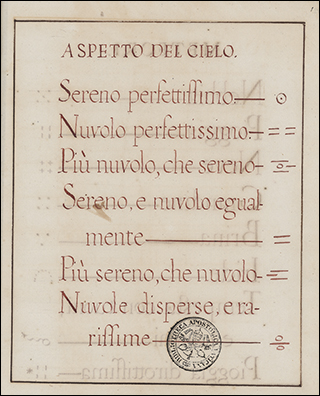 ASPETTO DEL CIELO.
Sereno perfettiſſimo
Nuvolo perfettissimo
Più nuvolo, che sereno
Sereno, e nuvolo egual-
mente
Più sereno, che nuvolo
Nuvole disperse, e ra-
riſſime
BIBLIOTHECA APOSTOLICA VATICANA